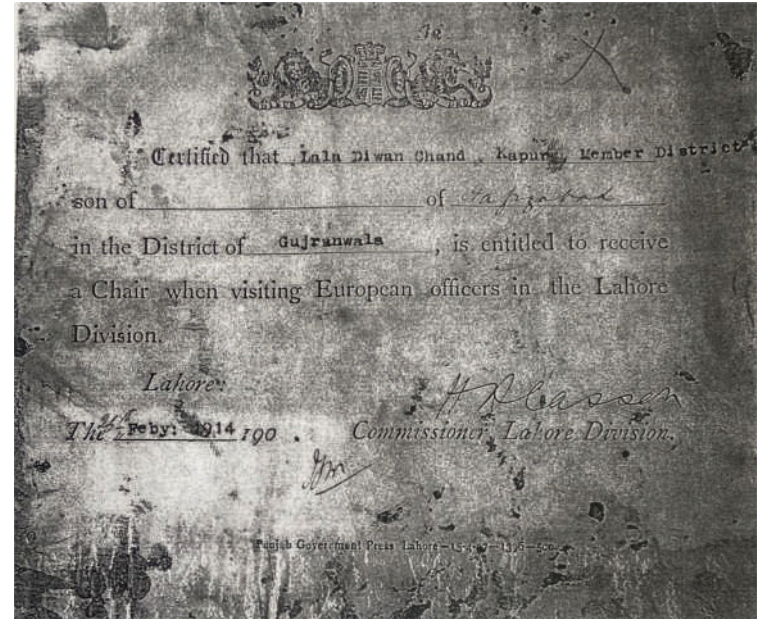 Certified that Lala Diwan Chand , Kapur, Member District
son of of
in the District of Gujranwala , is entitled to receive
a Chair when visiting European officers in the Lahore
Division.
Lahore:
The Feby: 1914 190 .
H A Casson
Commissioner, Lahore Division.
Punjab Government Press Lahore